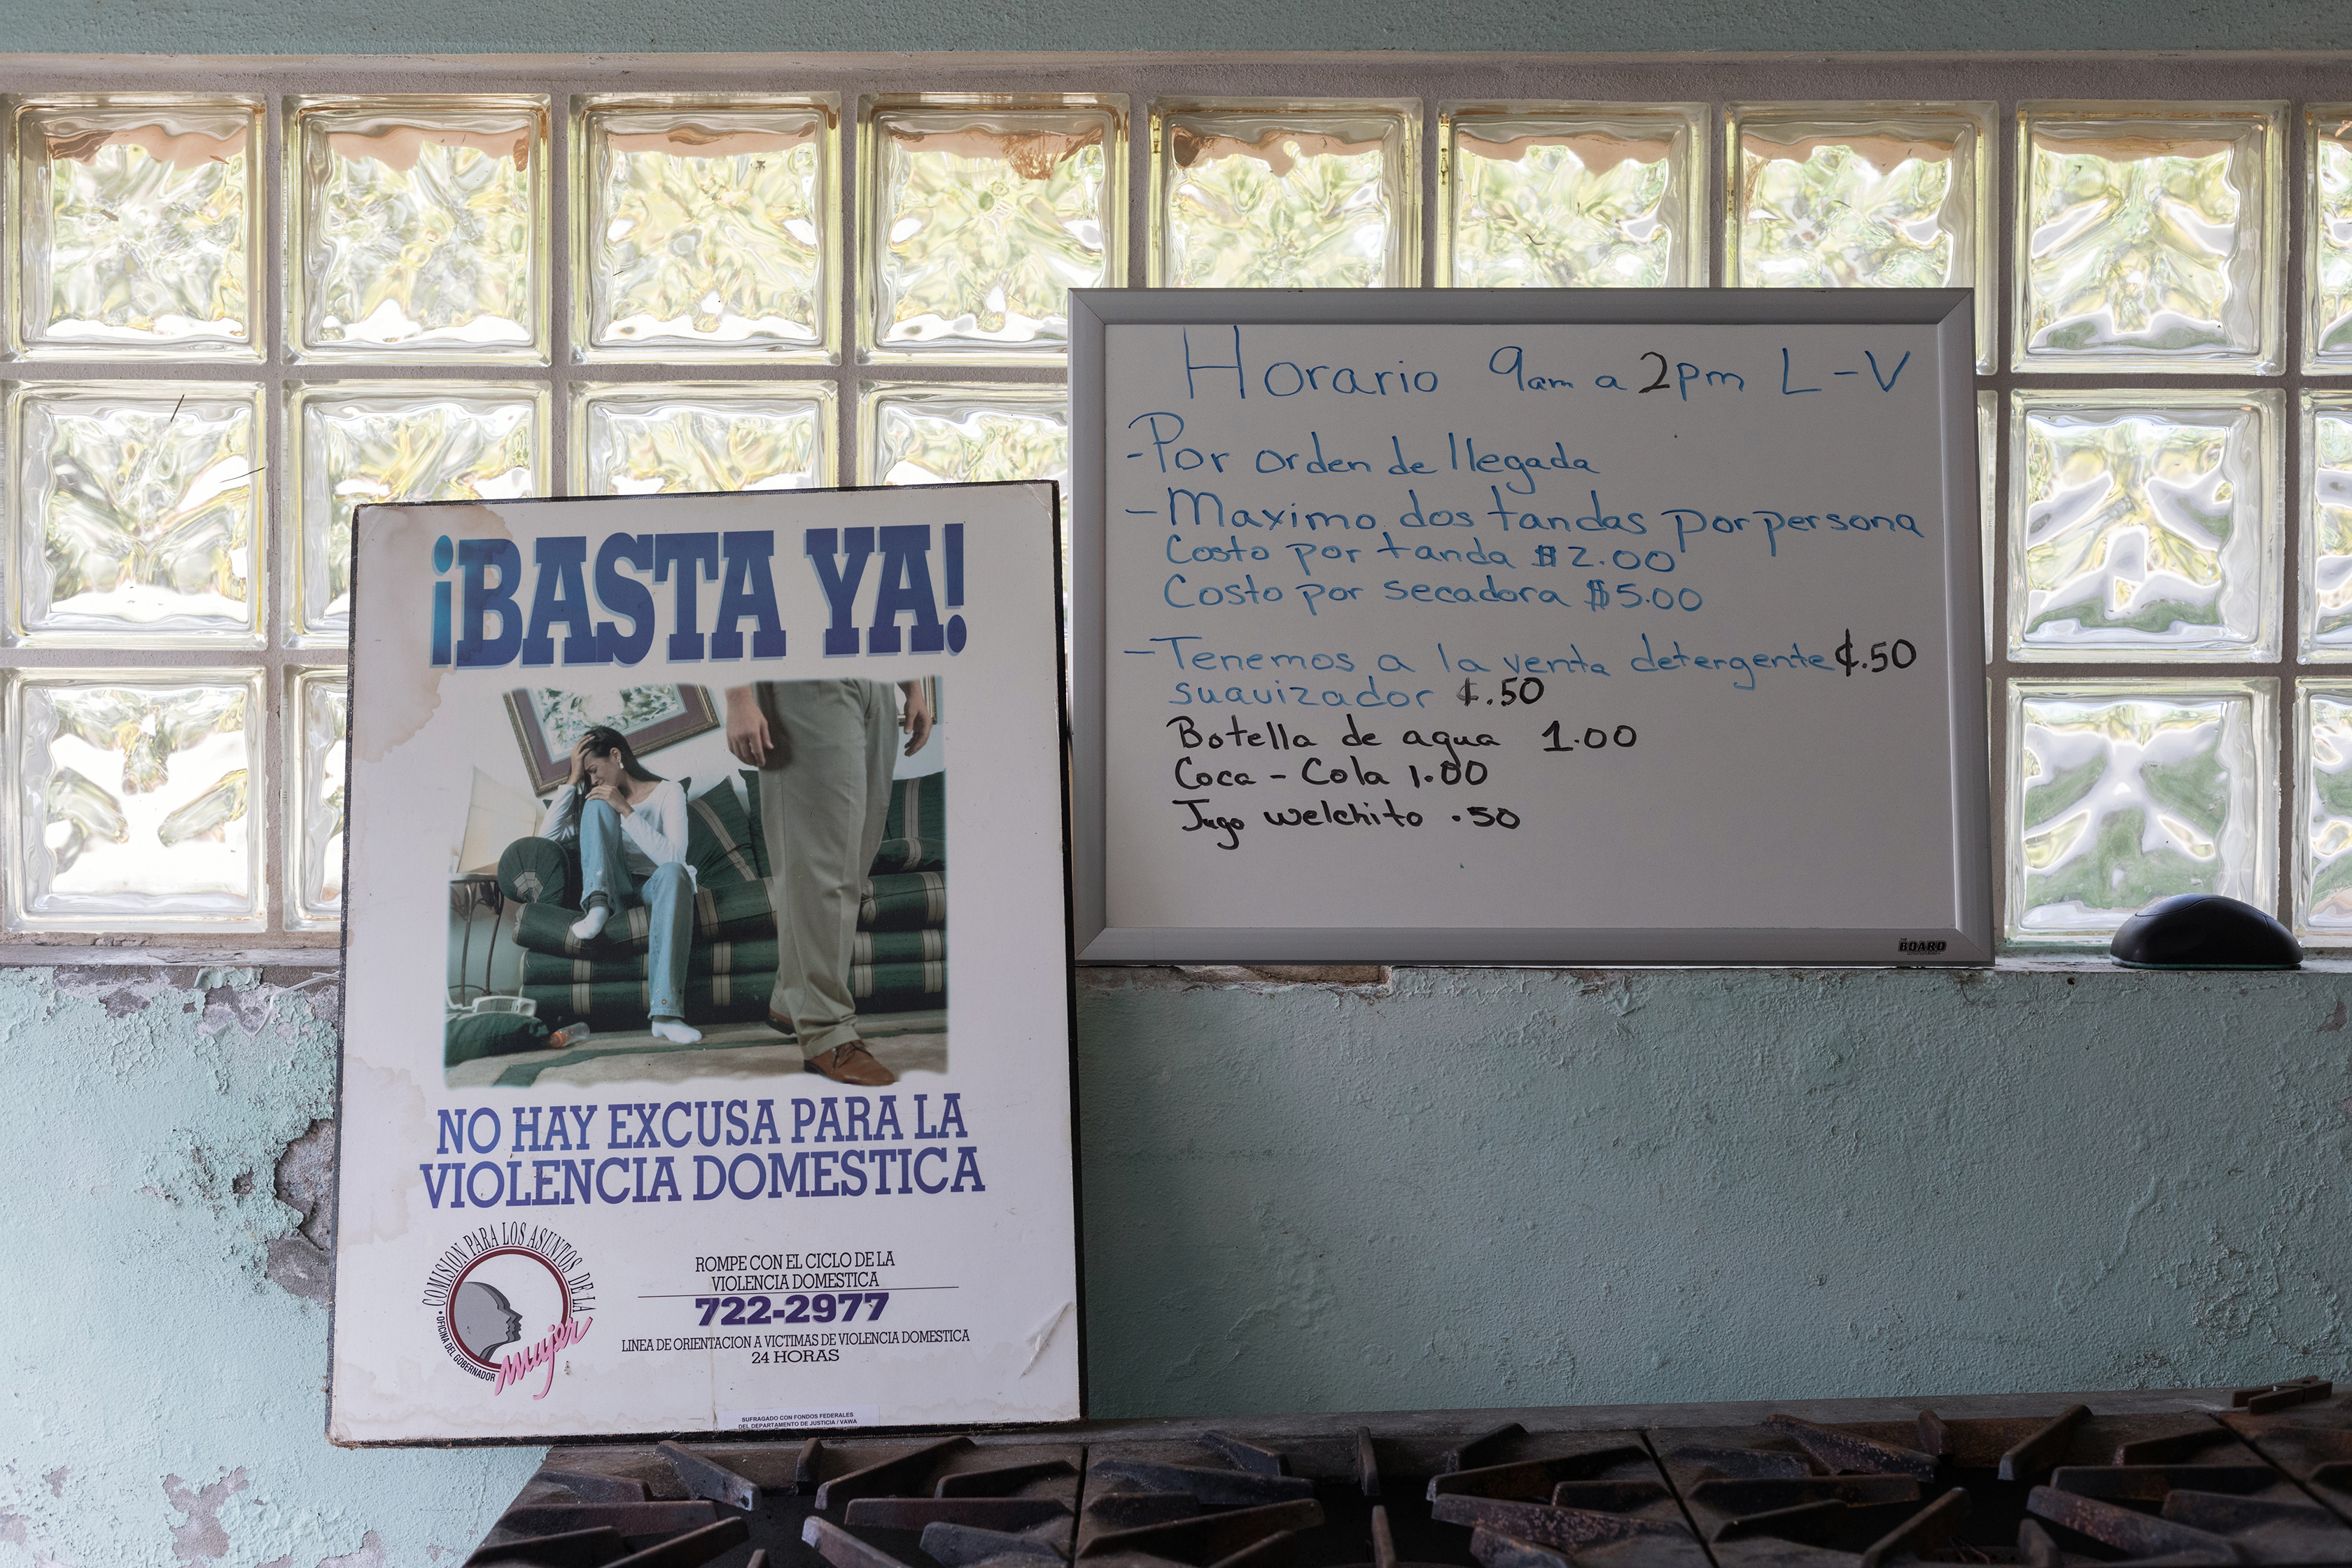 ¡BASTA YA!
NO HAY EXCUSA PARA LA
VIOLENCIA DOMESTICA
COMISION PARA LOS ASUNTOS DE LA
mujer
OFICINA DEL GOBERNADOR
ROMPE CON EL CICLO DE LA
VIOLENCIA DOMESTICA
722-2977
LINEA DE ORIENTACION A VICTIMAS DE VIOLENCIA DOMESTICA
24 HORAS
SUFRAGADO CON FONDOS FEDERALES
DEL DEPARTAMENTO DE JUSTICIA / VAWA
Horario 9am a 2pm L-V
-Por orden de llegada
-Maximo dos tandas por persona
Costo por tanda $2.00
Costo por secadora $5.00
-Tenemos a la venta detergente ¢.50
suavizador ¢.50
Botella de agua 1.00
Coca-Cola 1.00
Jugo welchito .50
BOARD